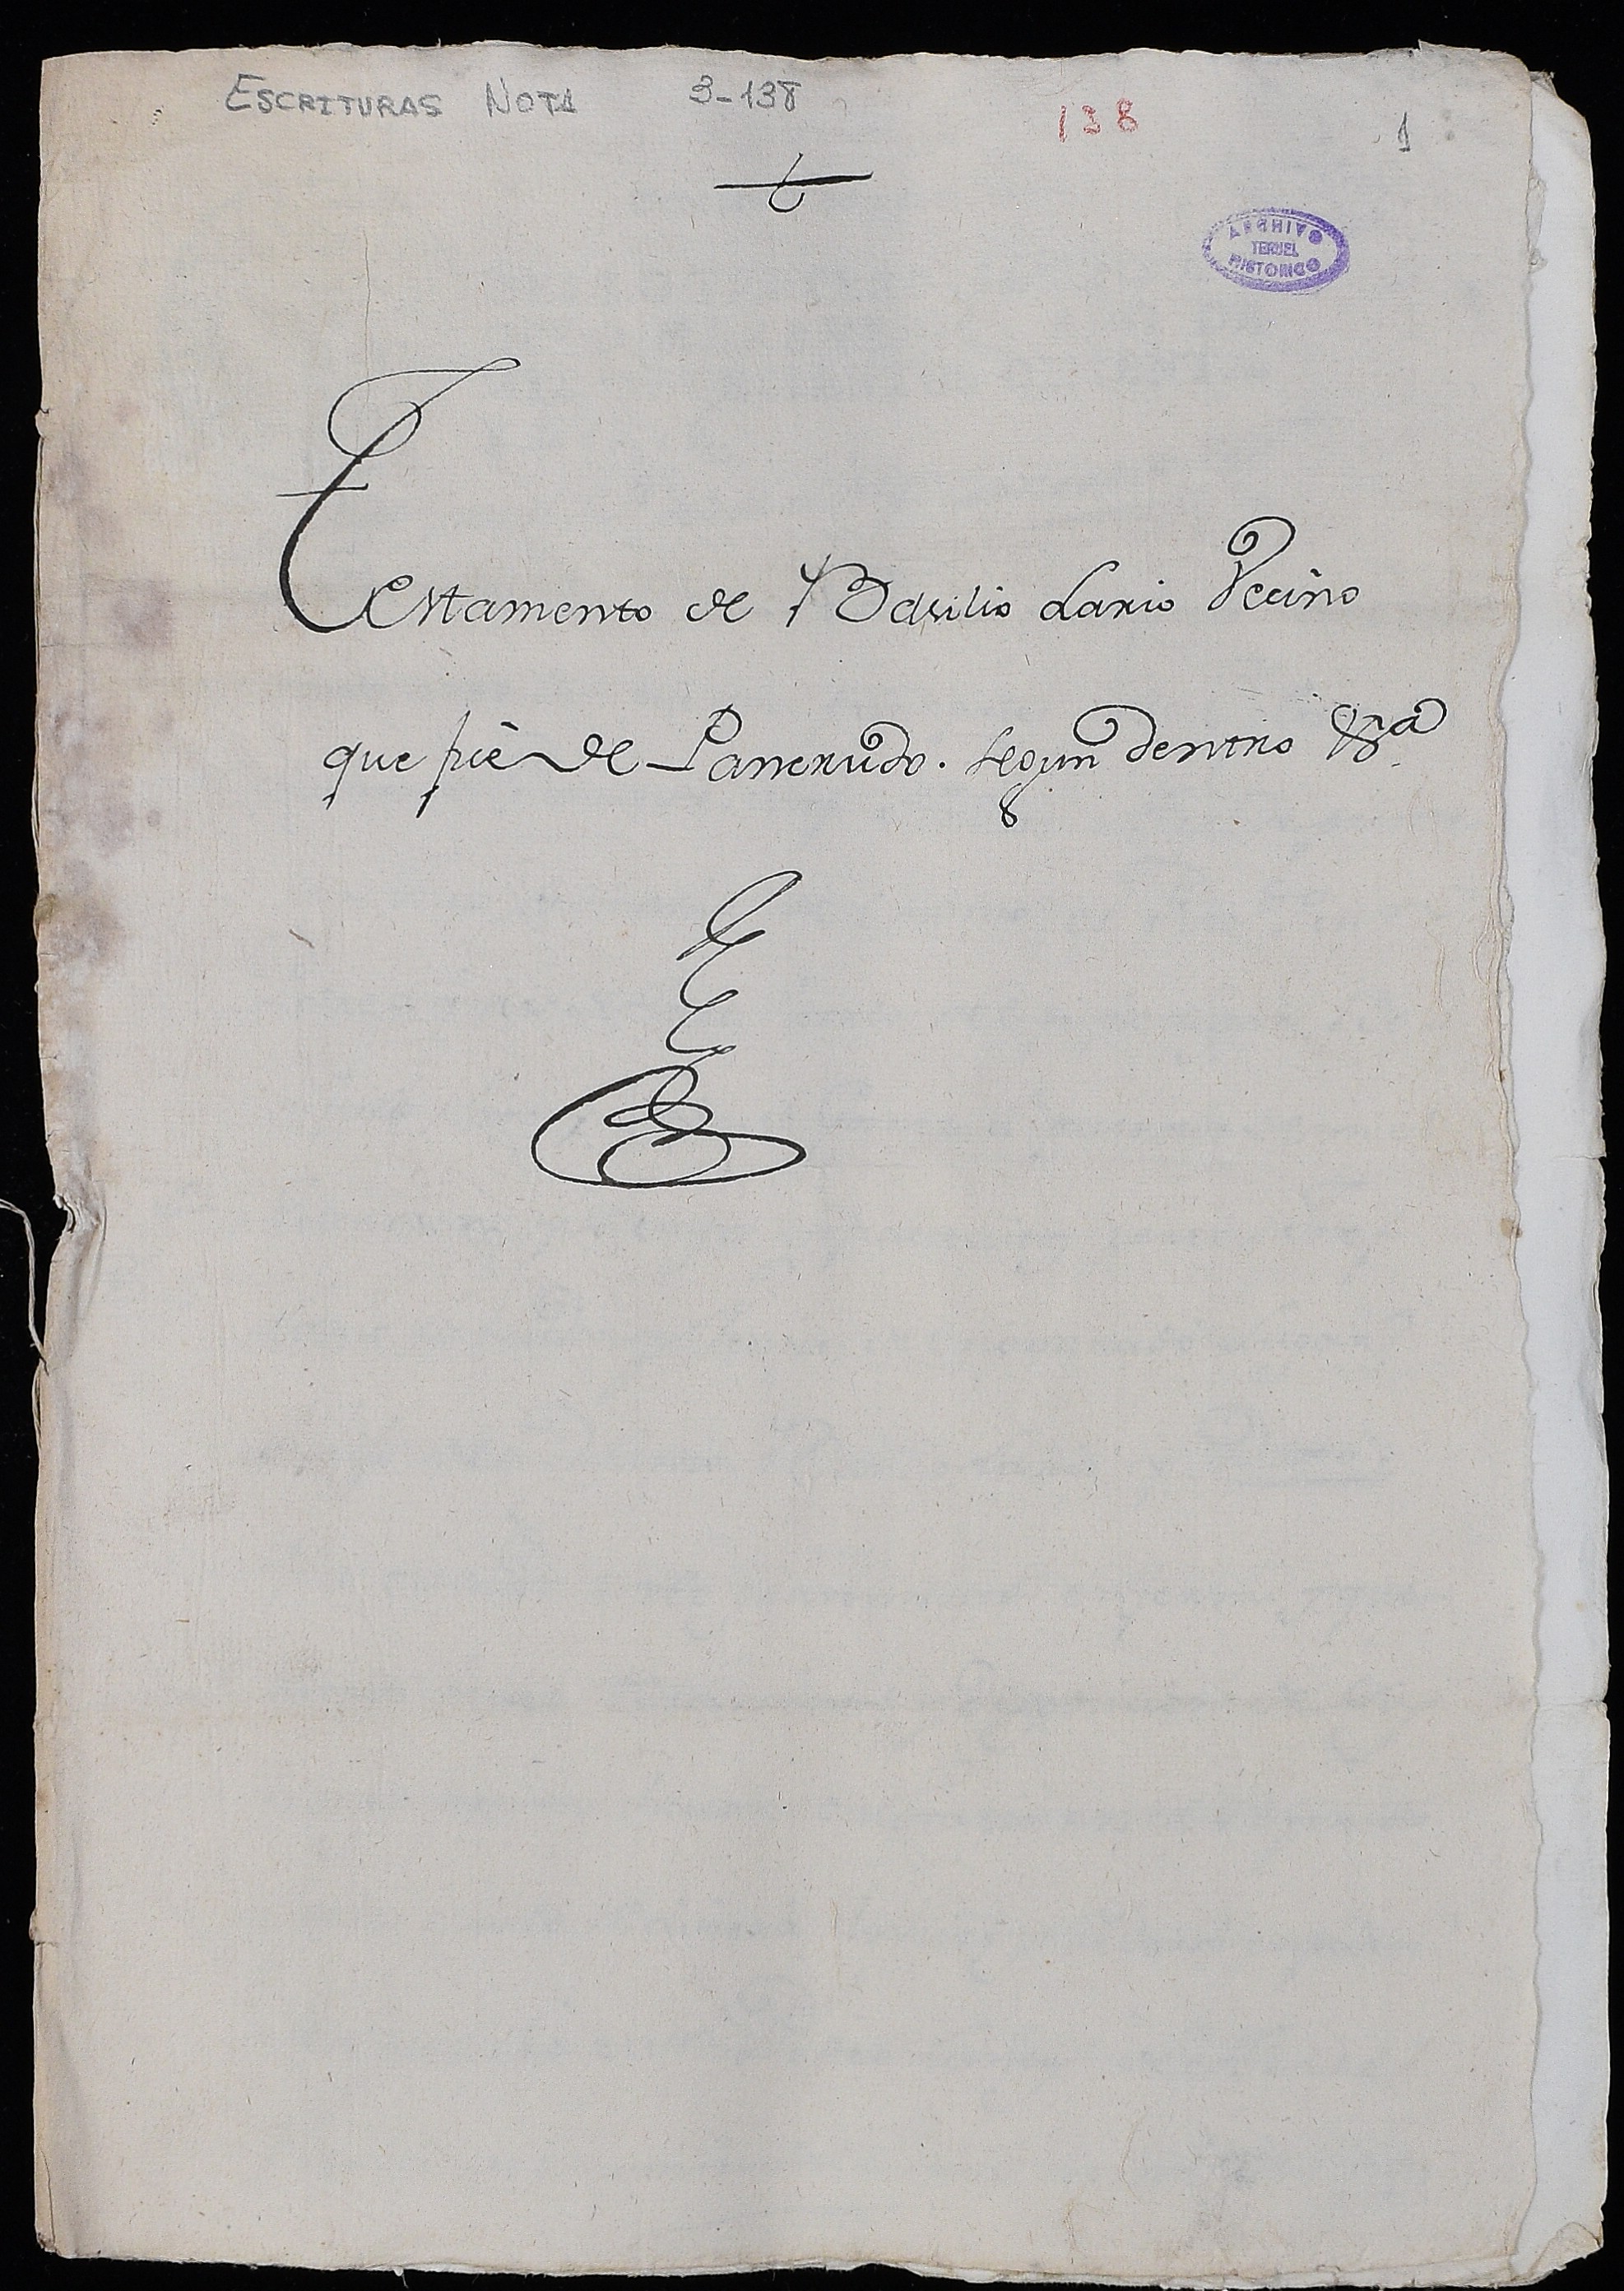 ESCRITURAS NOTA 3-138
138
1
ARCHIVO
TERUEL
HISTORICO
Testamento de Basilio Lario Vecino
que fué de Pancrudo. segun dentro